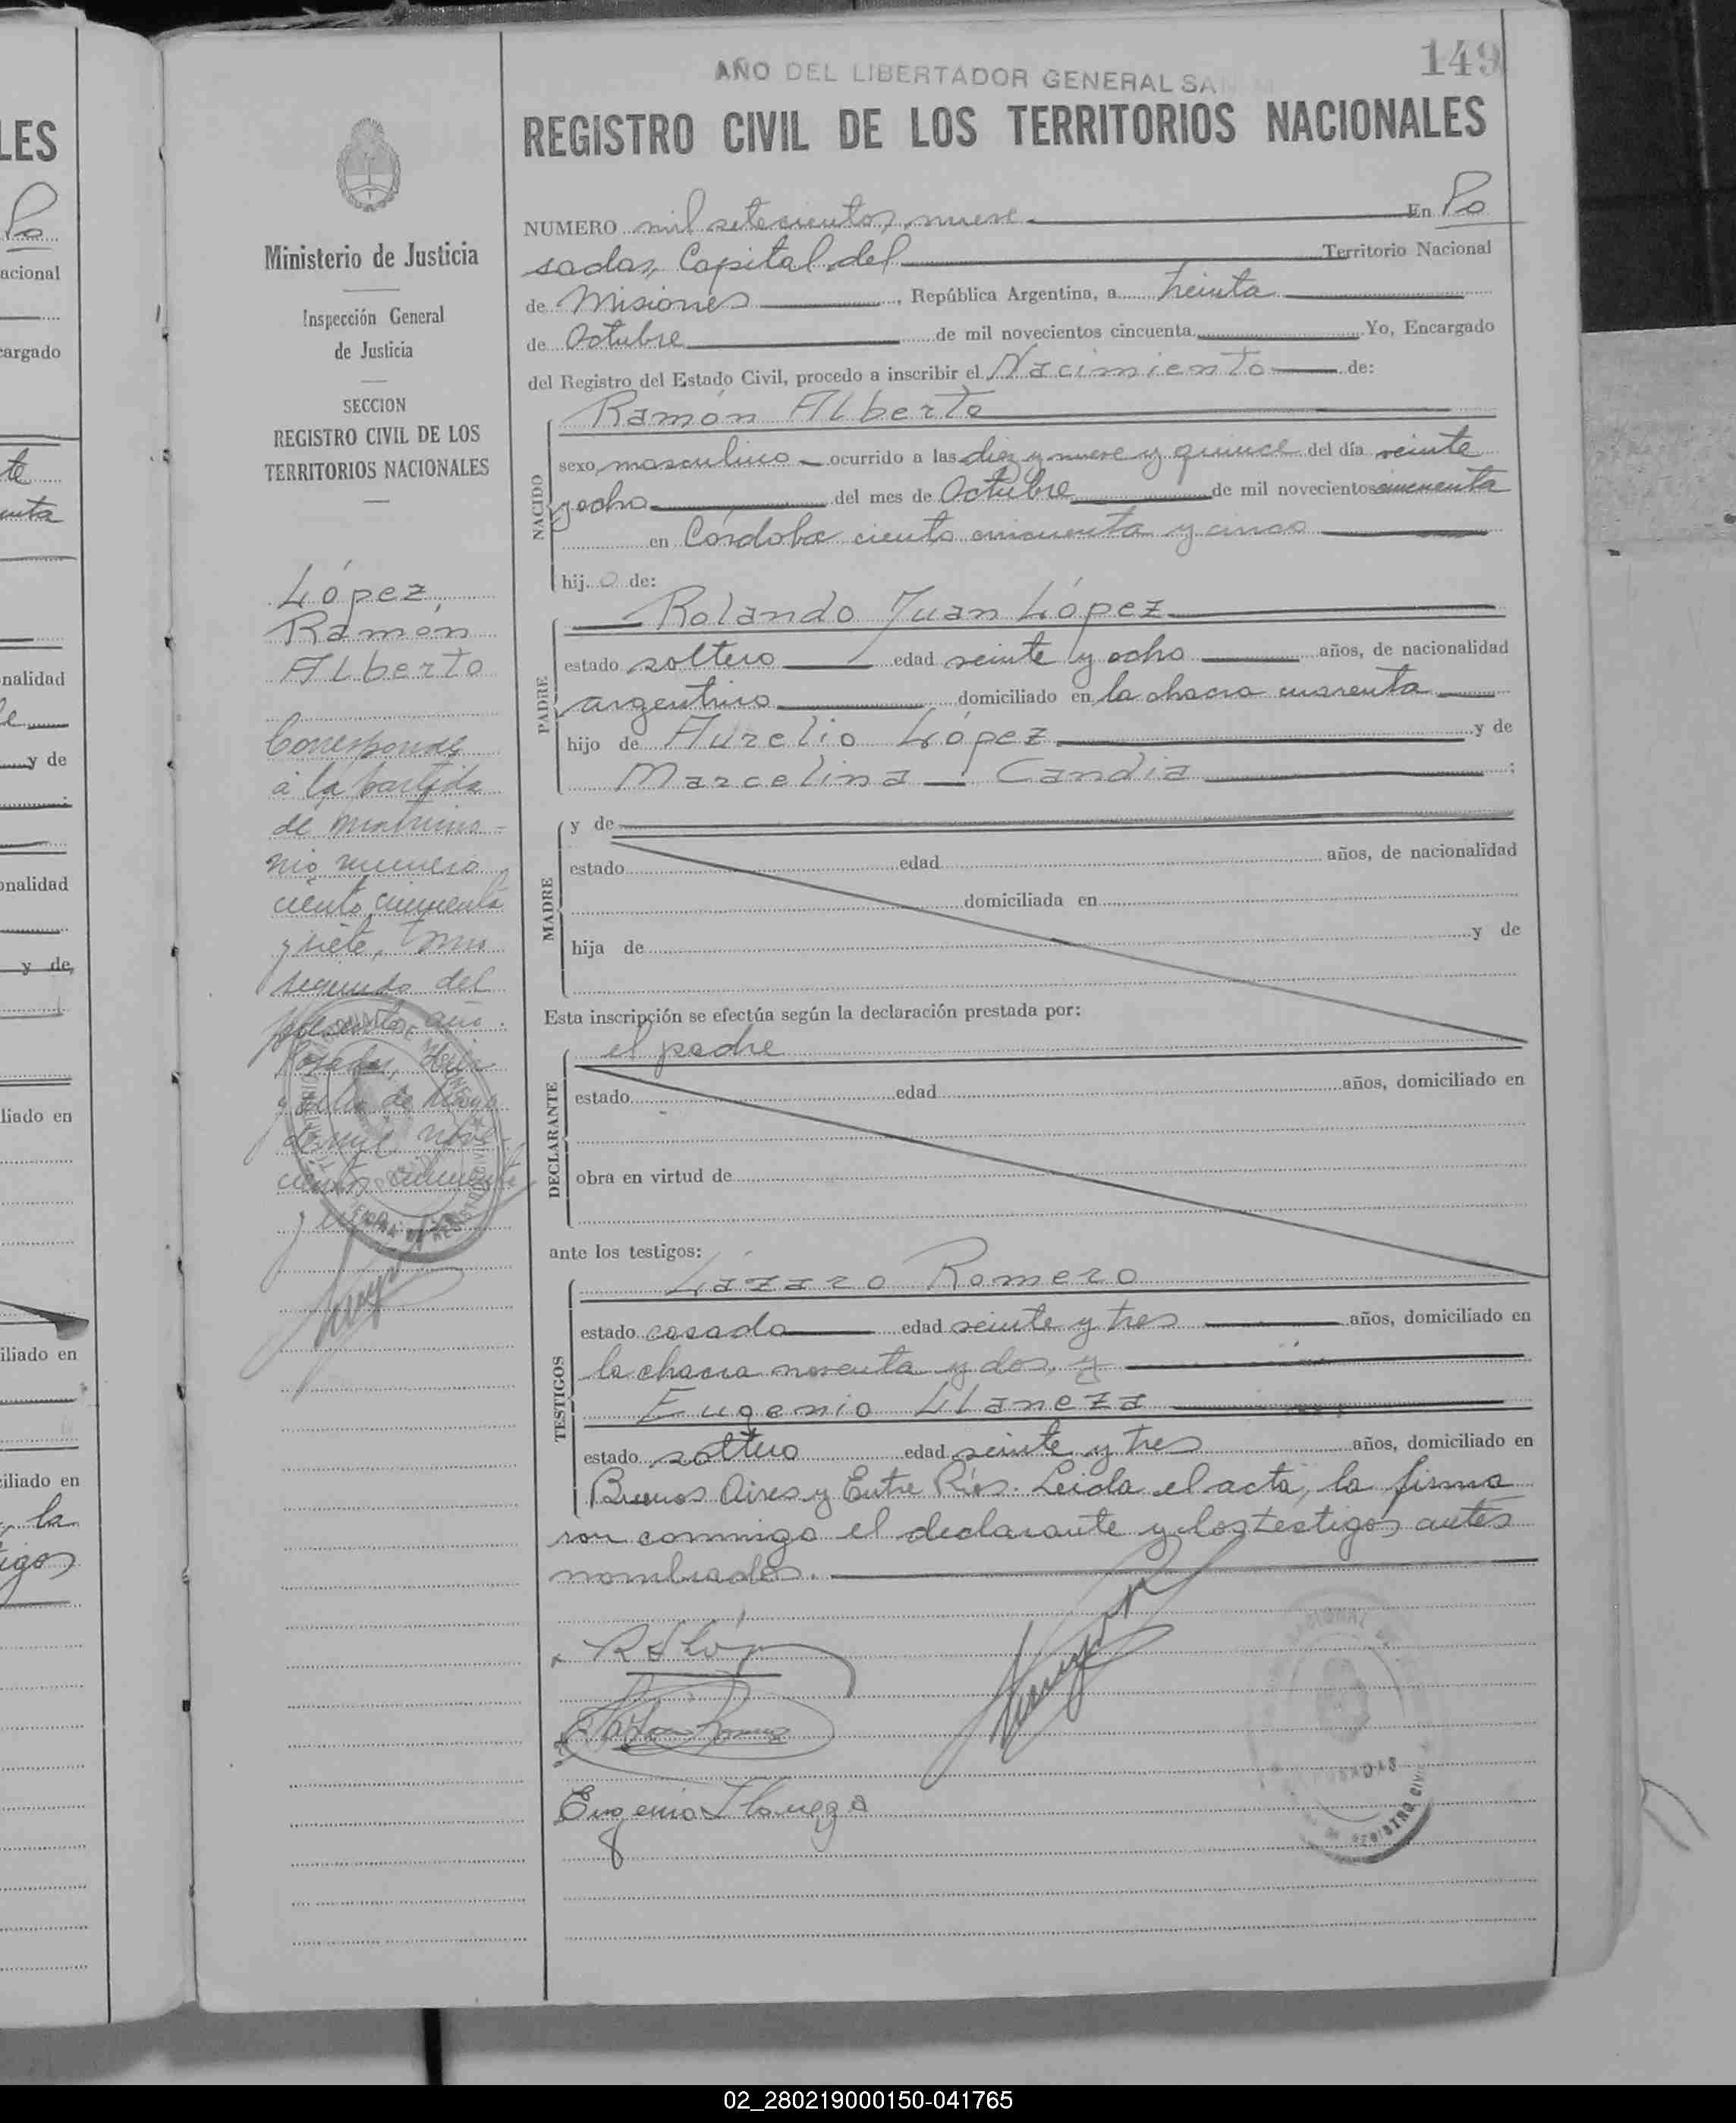 149
AÑO DEL LIBERTADOR GENERAL SAN
REGISTRO CIVIL DE LOS TERRITORIOS NACIONALES
Ministerio de Justicia
Inspección General
de Justicia
SECCION
REGISTRO CIVIL DE LOS
TERRITORIOS NACIONALES
López,
Ramón
Alberto
Corresponde
a la partida
de matrimo-
nio número
ciento cincuenta
y siete, tomo
segundo del
presente año.
Posadas,
de mayo
de mil nove-
cientos cincuenta
y
NUMERO mil setecientos nueve En Po
sadas, Capital del Territorio Nacional
de Misiones, República Argentina, a treinta
de Octubre de mil novecientos cincuenta Yo, Encargado
del Registro del Estado Civil, procedo a inscribir el Nacimiento de:
NACIDO
Ramón Alberto
sexo masculino ocurrido a las diez y nueve y quince del día veinte
y ocho del mes de Octubre de mil novecientos cincuenta
en Córdoba ciento cincuenta y cinco
hijo de:
PADRE
Rolando Juan López
estado soltero edad veinte y ocho años, de nacionalidad
argentino domiciliado en la chacra cuarenta
hijo de Aurelio López y de
Marcelina Candia ;
MADRE
y de
estado edad años, de nacionalidad
domiciliada en
hija de y de
Esta inscripción se efectúa según la declaración prestada por:
DECLARANTE
el padre
estado edad años, domiciliado en
obra en virtud de
ante los testigos:
TESTIGOS
Lázaro Romero
estado casado edad veinte y tres años, domiciliado en
la chacra noventa y dos, y
Eugenio Llaneza
estado soltero edad veinte y tres años, domiciliado en
Buenos Aires y Entre Ríos. Leída el acta, la firma
ron conmigo el declarante y los testigos antes
nombrados.
Eugenio Llaneza
POSADAS
REGISTRO CIVIL
02_280219000150-041765